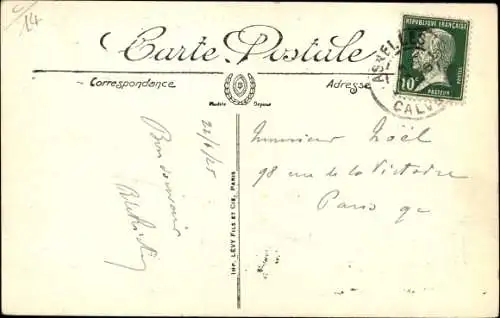 14
Carte Postale
Correspondance
Adresse
Modèle Déposé
REPUBLIQUE FRANÇAISE
10c
POSTES
PASTEUR
ASNELLES
CALV
22/6/25
Bon souvenir
Monsieur Noël
98 rue de la Victoire
Paris 9e
IMP. LÉVY FILS ET CIE, PARIS